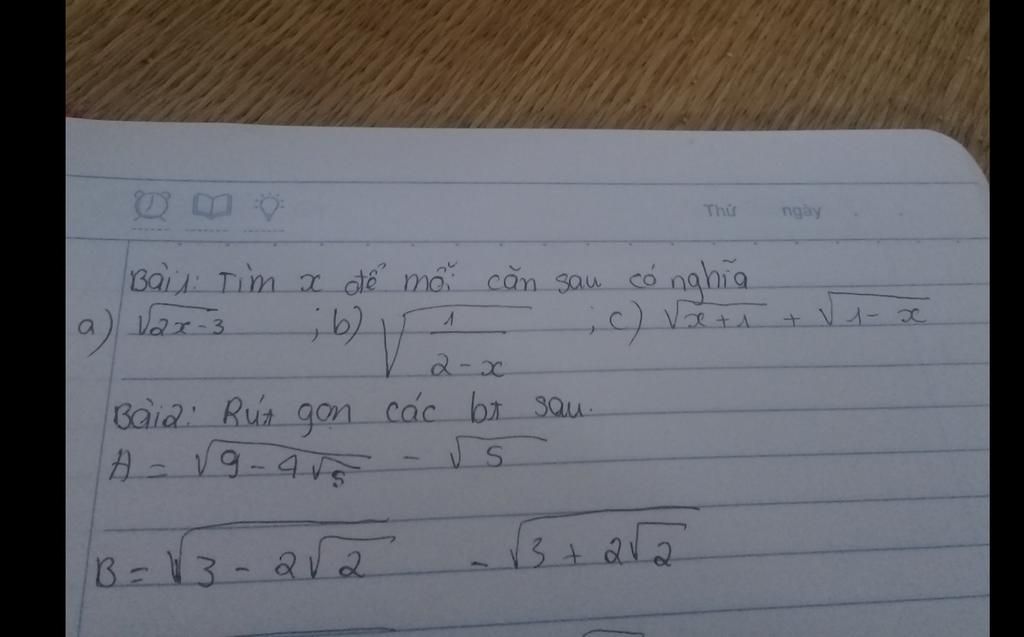 Thứ ngày
Bài1: Tìm x để mỗi căn sau có nghĩa
a) √(2x-3) ; b) √(1/(2-x)) ; c) √(x+1) + √(1-x)
Bài2: Rút gọn các bt sau.
A = √(9-4√5) - √5
B = √(3-2√2) - √(3+2√2)